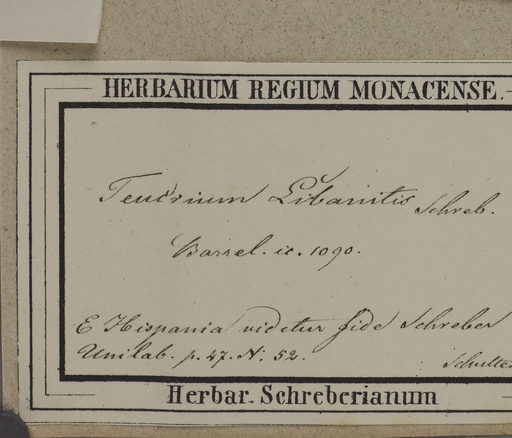 HERBARIUM REGIUM MONACENSE.
Teucrium Libanitis Schreb.
Barrel. ic. 1090.
E Hispania videtur fide Schreber
Unilab. p. 47. N. 52.
Herbar. Schreberianum